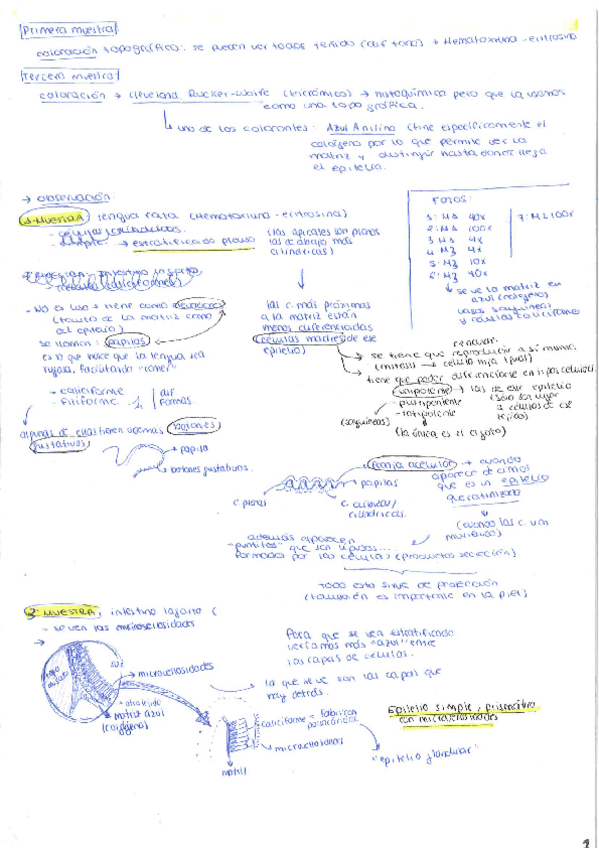 Primera muestra
coloración topográfica: se pueden ver todos teñido (dif tono) + Hematoxilina - eritrosina
Tercera muestra
coloración → Cleveland Rucker-Wolfe (tricrómico) → histoquímica pero que la usamos
como una topográfica.
uno de los colorantes: Azul Anilina (tiñe específicamente el
colágeno por lo que permite ver la
matriz y distinguir hasta donde llega
el epitelio.
→ Observación:
1ª MUESTRA lengua rata (Hematoxilina-eritrosina)
- simple → estratificado plano
(las apicales son planas
las de abajo más
cilíndricas)
FOTOS:
1: M1 40x
2: M1 100x
3: M1 4x
4: M3 4x
5: M3 10x
6: M3 40x
7: M2 100x
se ve la matriz en
azul (colágeno)
vasos sanguíneos
y células caliciformes
- NO es liso → tiene como
(tanto de la matriz como
del epitelio)
se llaman: papilas
es lo que hace que la lengua sea
rugosa, facilitando "comer"
las c. más próximas
a la matriz están
menos diferenciadas
(células madres de ese
epitelio)
renovar:
se tiene que reproducir a sí misma
(mitosis) → célula hija igual)
tiene que poder diferenciarse en tipos celulares
unipotente → las de ese epitelio
(sólo son lugar
a células de ese
tejido)
- pluripotente
(sanguíneas)
- totipotente
(la única es el cigoto)
- caliciforme
- filiforme
dif
formas.
algunas de ellas tienen además botones
gustativos
→ papila
→ botones gustativos.
→ papilas
c. planas
c. cúbicas/
cilíndricas.
Franja acelular → cuando
aparece de arriba
que es un epitelio
queratinizado
(cuando las c. van
muriendo)
además aparecen
"puntitos" que son lípidos...
formados por las células (productos secreción)
TODO esto sirve de protección
(también es importante en la piel)
2ª MUESTRA: intestino lagarto (
- se ven las microvellosidades
→ microvellosidades
matriz azul
(colágeno)
Para que se vea estratificado
veríamos más "azul" entre
las capas de células.
lo que se ve son las capas que
hay detrás.
caliciforme = fabrican
→ microvellosidades
matriz
Epitelio simple, prismático
con microvellosidades
"epitelio glandular"
1